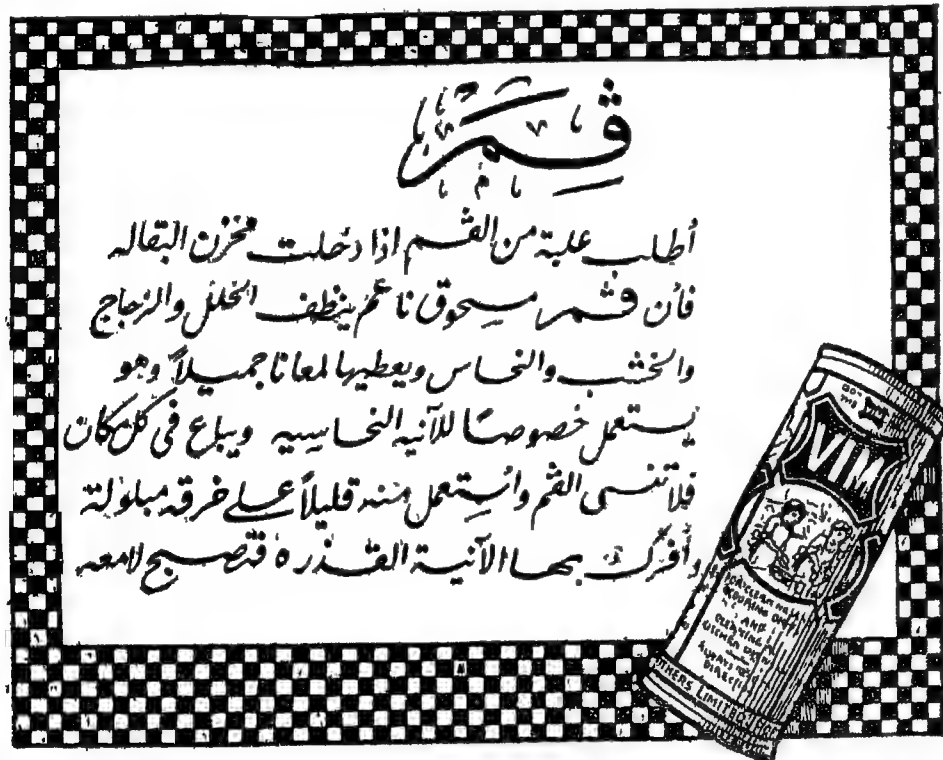 ڤمر
أطلب علبة من الڤم اذا دخلت مخزن البقاله
فأن ڤمر مسحوق ناعم ينظف الخلل والزجاج
والخشب والنحاس ويعطيها لمعانا جميلاً وهو
يستعمل خصوصاً للآنيه النحاسيه ويباع في كل مكان
فلا تنسى الڤم وأستعمل منه قليلاً على خرقه مبلولة
وأفرك بها الآنية القذره فتصبح لامعه
VIM
AND
LIMITED